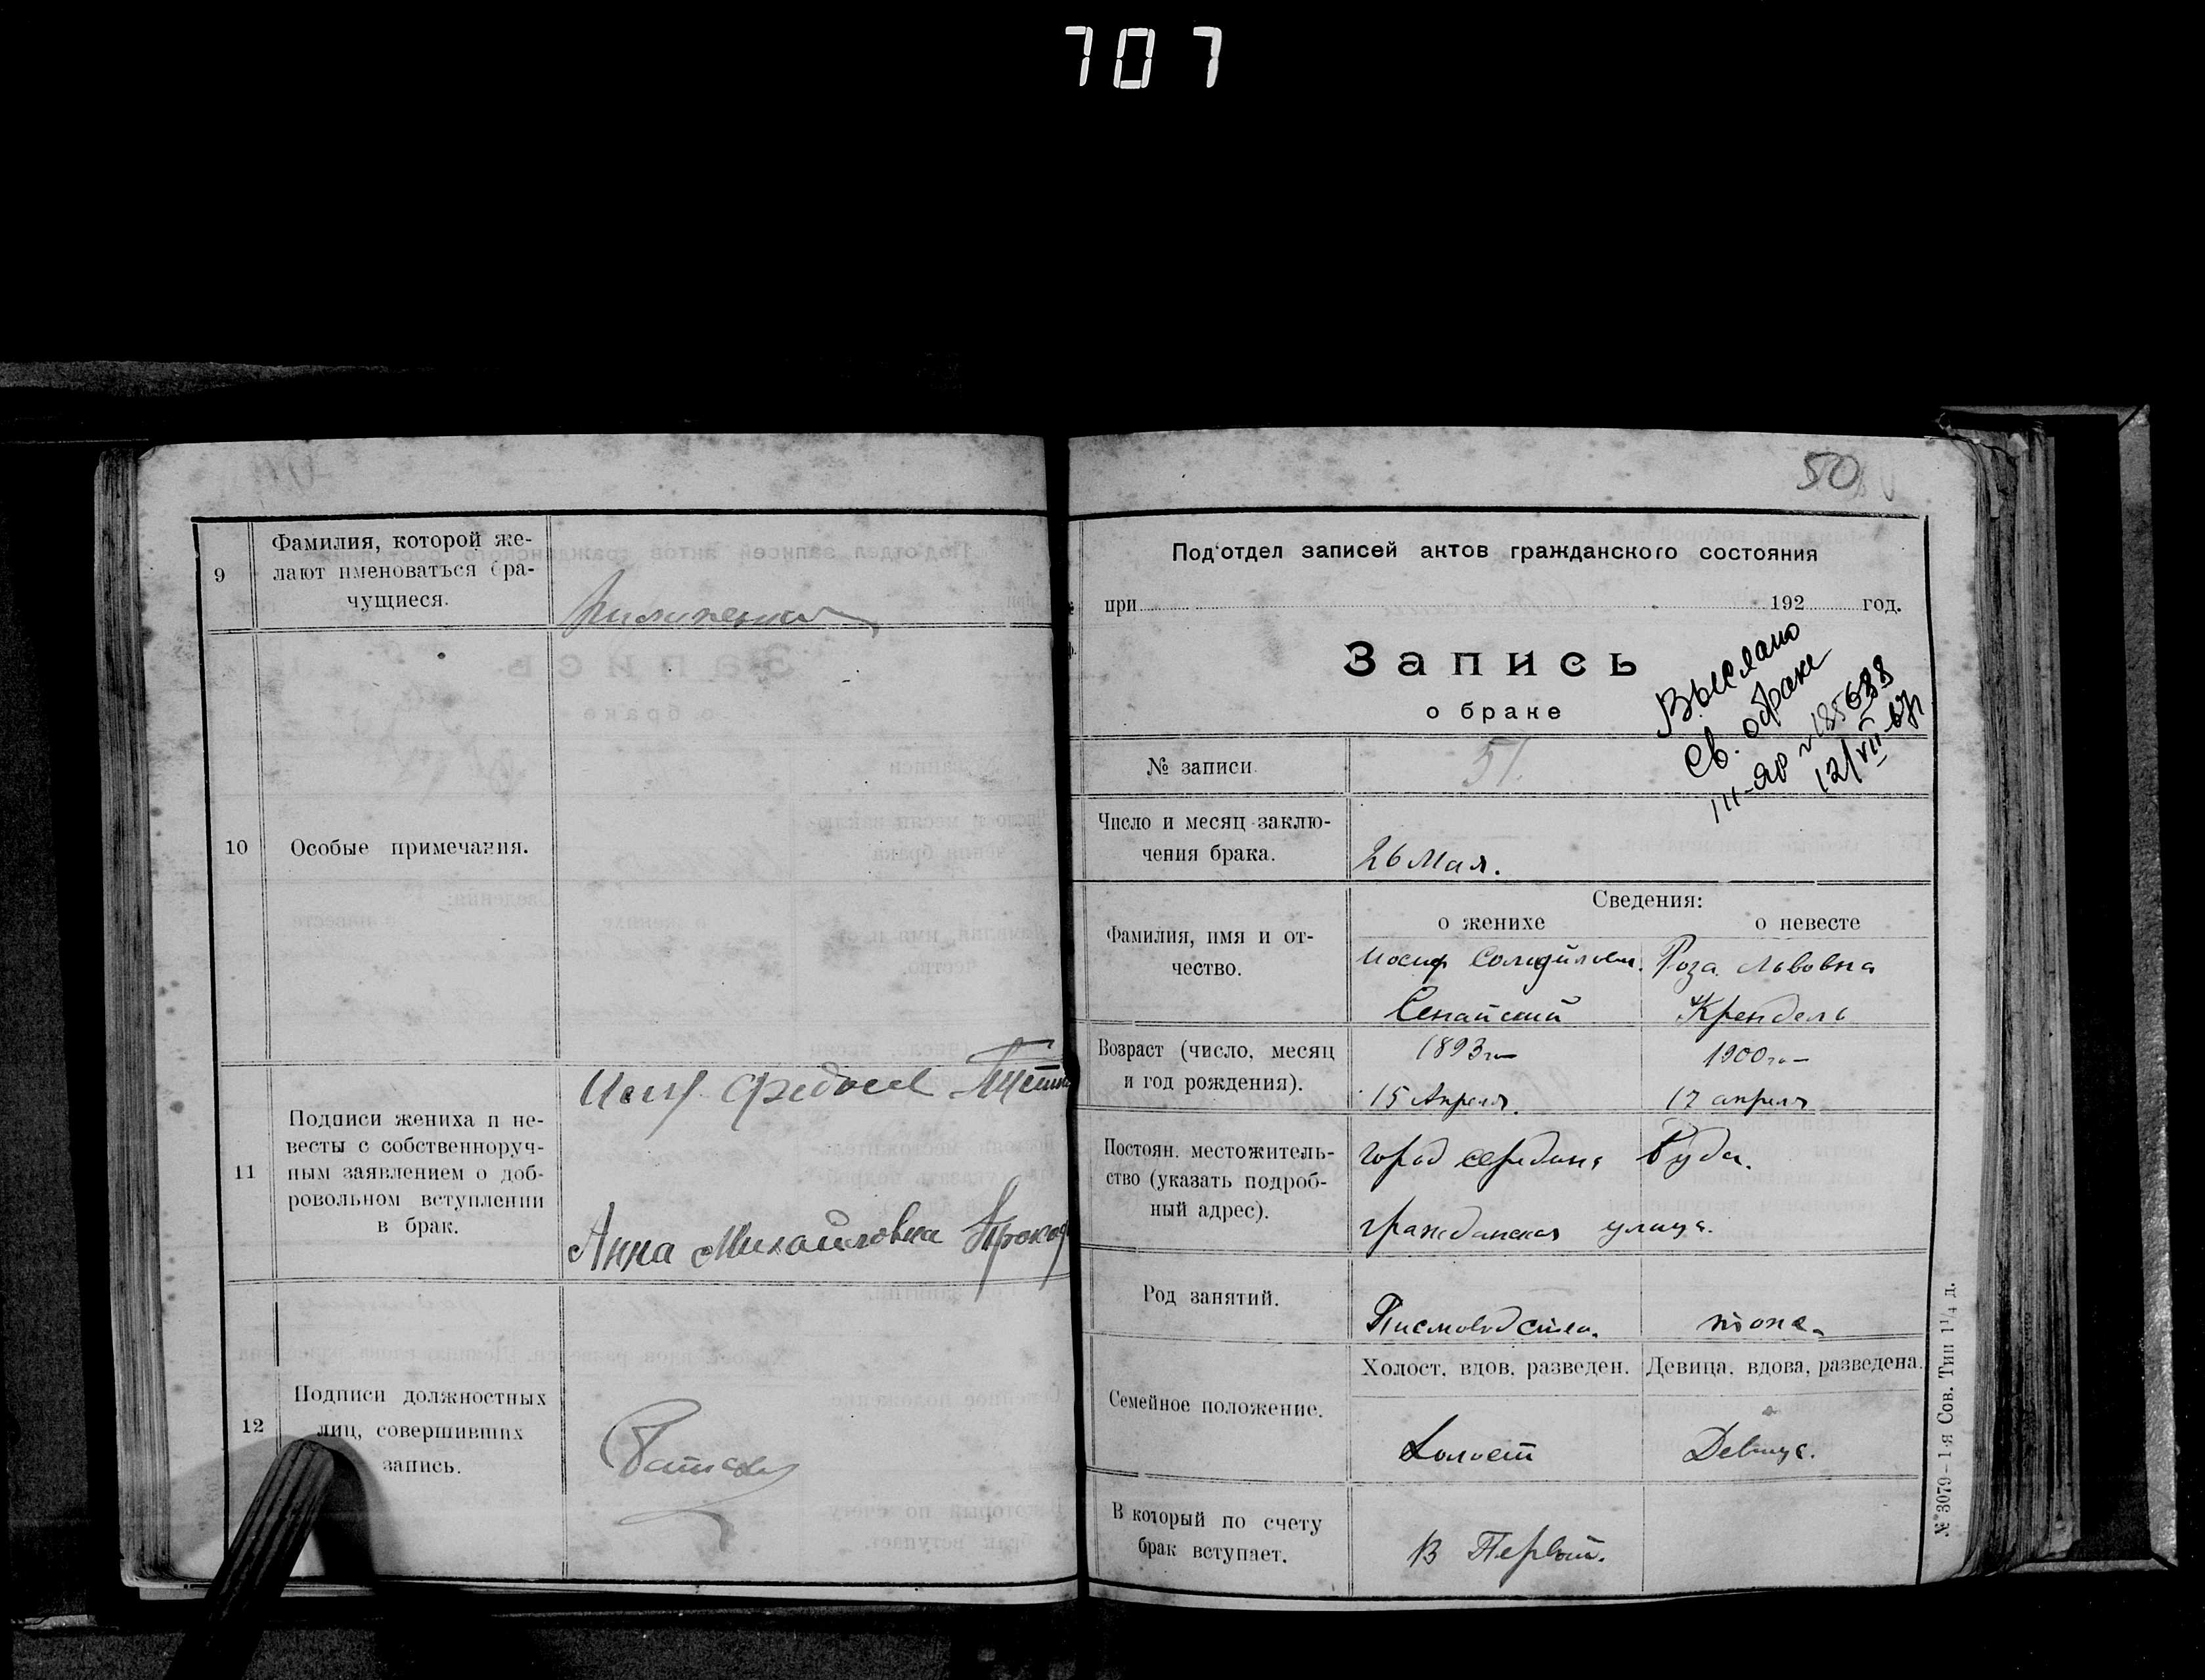 707
9
Фамилия, которой же-
лают именоваться бра-
чущиеся.
10
Особые примечания.
11
Подписи жениха и не-
весты с собственноруч-
ным заявлением о доб-
ровольном вступлении
в брак.
Анна Михайловна
12
Подписи должностных
лиц, совершивших
запись.
50
Под'отдел записей актов гражданского состояния
при 192 год.
Запись
о браке
Выслано
св. о браке
12/VII-67
№ записи 51.
Число и месяц заклю-
чения брака.
26 Мая.
Сведения:
о женихе о невесте
Фамилия, имя и от-
чество.
Иосиф Роза Львовна
Сенайский Крендель
Возраст (число, месяц
и год рождения).
1893 г. 1900 г.
15 Апреля. 17 апреля
Постоян. местожитель-
ство (указать подроб-
ный адрес).
город середина буда.
гражданская улица.
Род занятий.
Писмоводство.
Семейное положение.
Холост, вдов, разведен. Девица, вдова, разведена.
Холост Девица.
В который по счету
брак вступает.
В Первый.
№ 3079—1-я Сов. Тип 1¼ д.